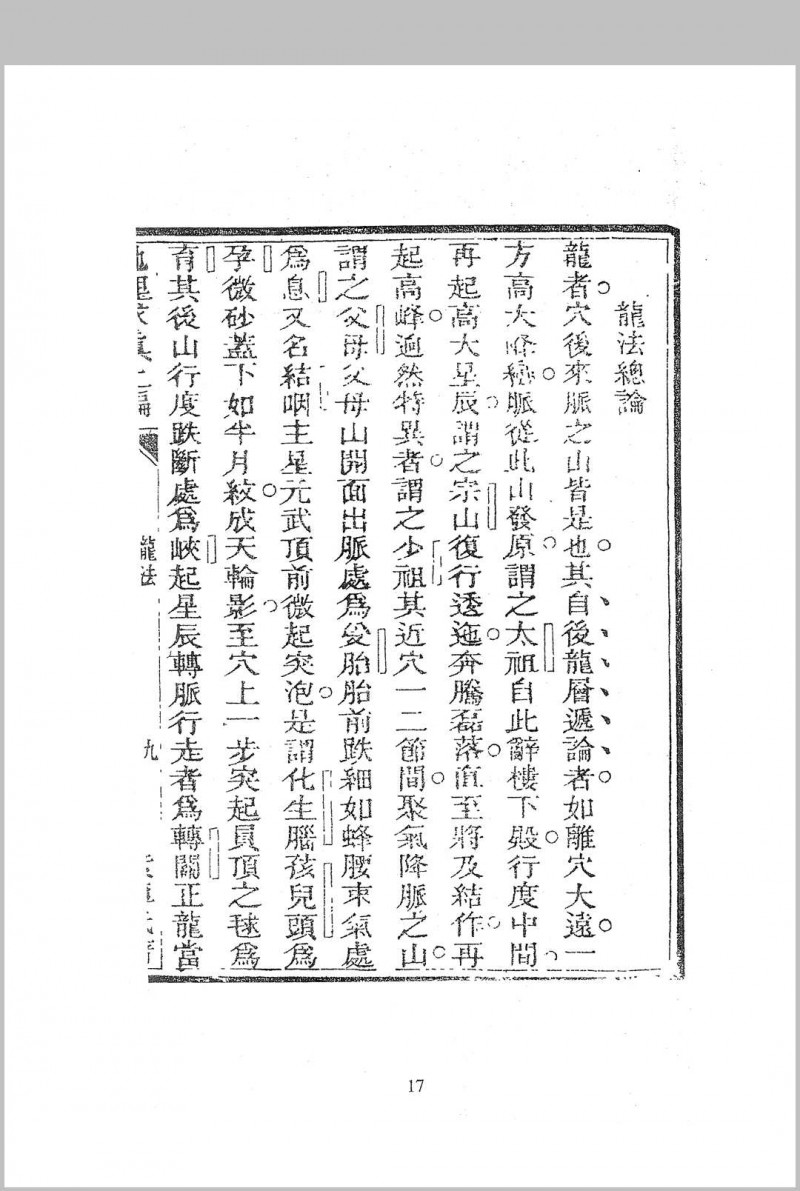 龍法總論
龍者穴後來脈之山皆是也其自後龍層遞論者如離穴大遠一
方高大峰巒脈從此山發原謂之太祖自此辭樓下殿行度中間
再起高大星辰謂之宗山復行透迤奔騰磊落直至將及結作再
起高峰逈然特異者謂之少祖其近穴一二節間聚氣降脈之山
謂之父母父母山開面出脈處爲受胎胎前跌細如蜂腰束氣處
爲息又名結咽主星元武頂前微起突泡是謂化生腦孩兒頭爲
孕微砂蓋下如半月紋成天輪影至穴上一步突起員頂之毬爲
育其後山行度跌斷處爲峽起星辰轉脈行走者爲轉關正龍當
龍法
九
17